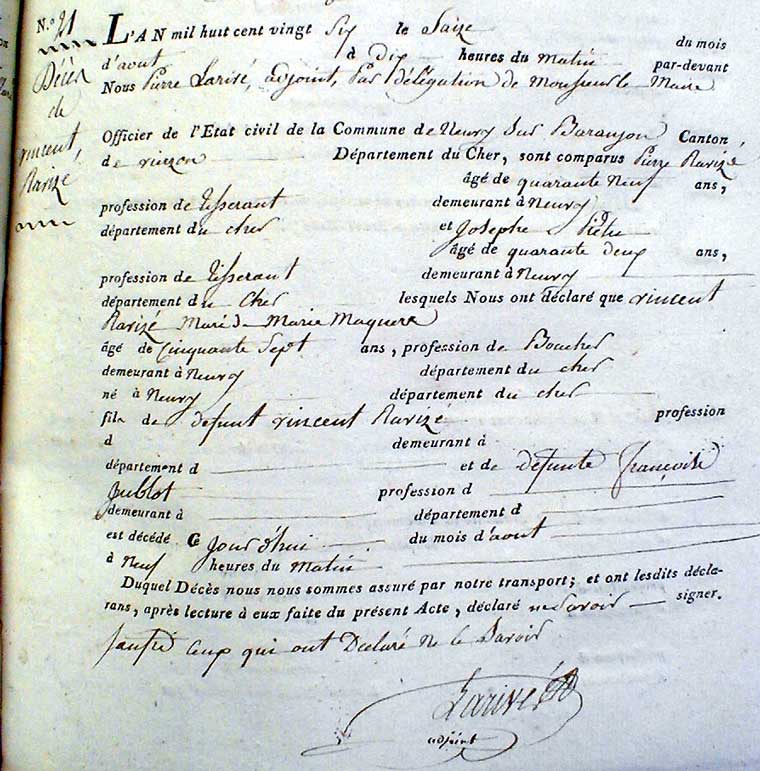 N.º 21
Décès
de
vincent
Ravizé
L'AN mil huit cent vingt Six le Saize du mois
d'aout à Dix heures du Matin par-devant
Nous Pierre Larivé, adjoint, Par délégation de Monsieur le Maire
Officier de l'Etat civil de la Commune de Neuvy Sur Baranjon Canton
de vierzon Département du Cher, sont comparus Pierre Ravizé
âgé de quarante Neuf ans,
profession de tisserant demeurant à Neuvy
département du cher et Josephe
âgé de quarante deux ans,
profession de tisserant demeurant à Neuvy
département du Cher lesquels Nous ont déclaré que vincent
Ravizé Marié à Marie
âgé de Cinquante Sept ans, profession de Boucher
demeurant à Neuvy département du cher
né à Neuvy département du cher
fils de defunt vincent Ravizé profession
d demeurant à
département d et de defunte françoise
Jublot profession d
demeurant à département d
est décédé Ce Jour d'hui du mois d'aout
à Neuf heures du Matin
Duquel Décès nous nous sommes assuré par notre transport; et ont lesdits décla-
rans, après lecture à eux faite du présent Acte, déclaré ne Savoir signer.
ceux qui ont Declaré ne le Savoir
Larivé
adjoint